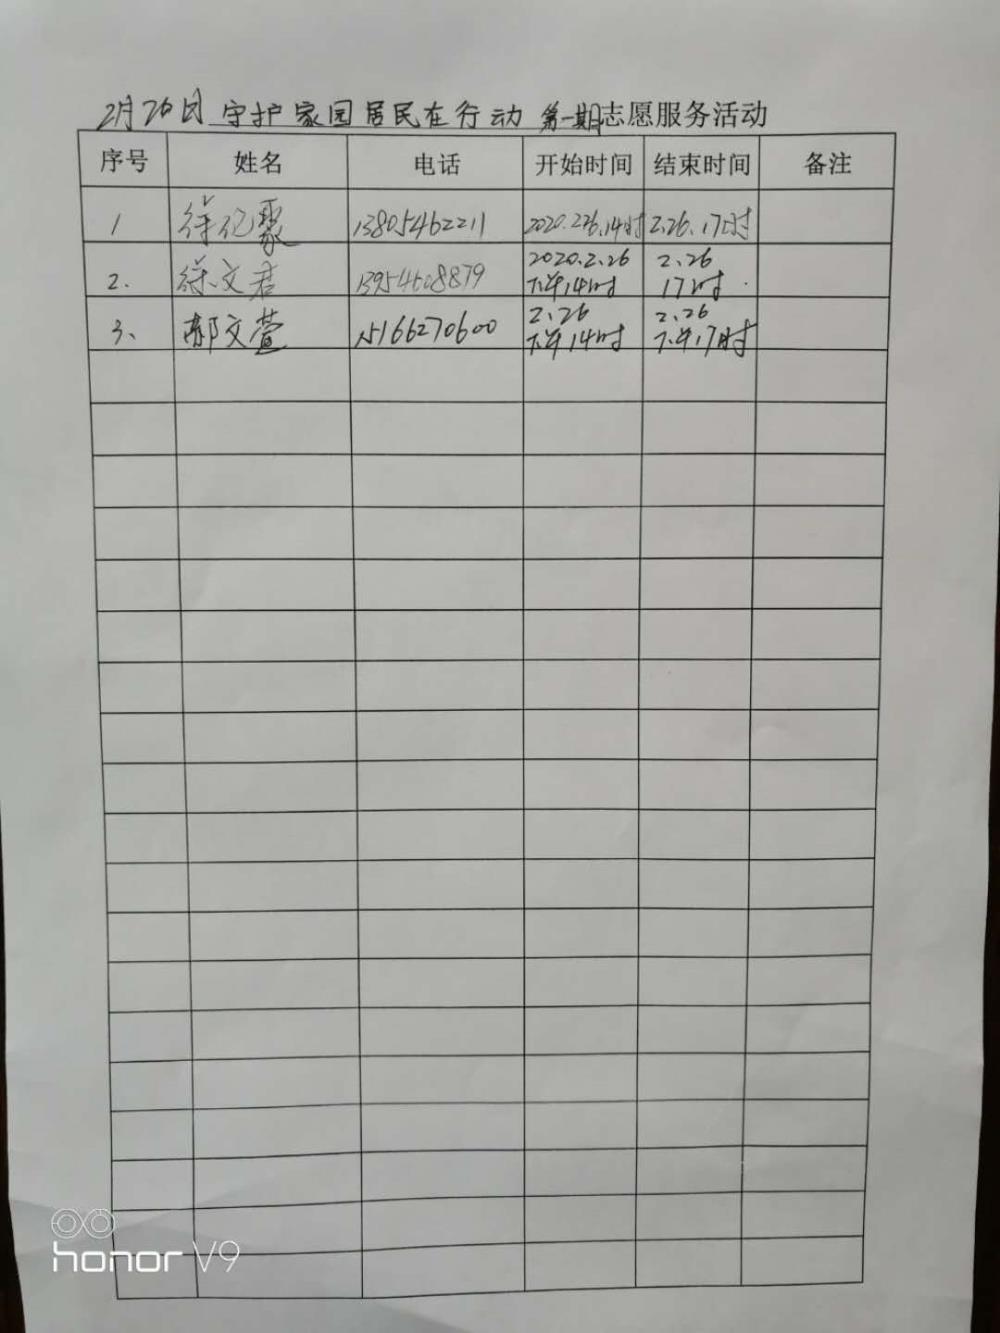 2月26日 守护家园居民在行动 第一期志愿服务活动
序号 姓名 电话 开始时间 结束时间 备注
1 徐亿聚 13805462211 2020.2.26.14时 2.26.17时
2. 徐文君 13954608879 2020.2.26 2.26
下午14时 17时
3、 郝文萱 15166270600 2.26 2.26
下午14时 下午17时
honor V9